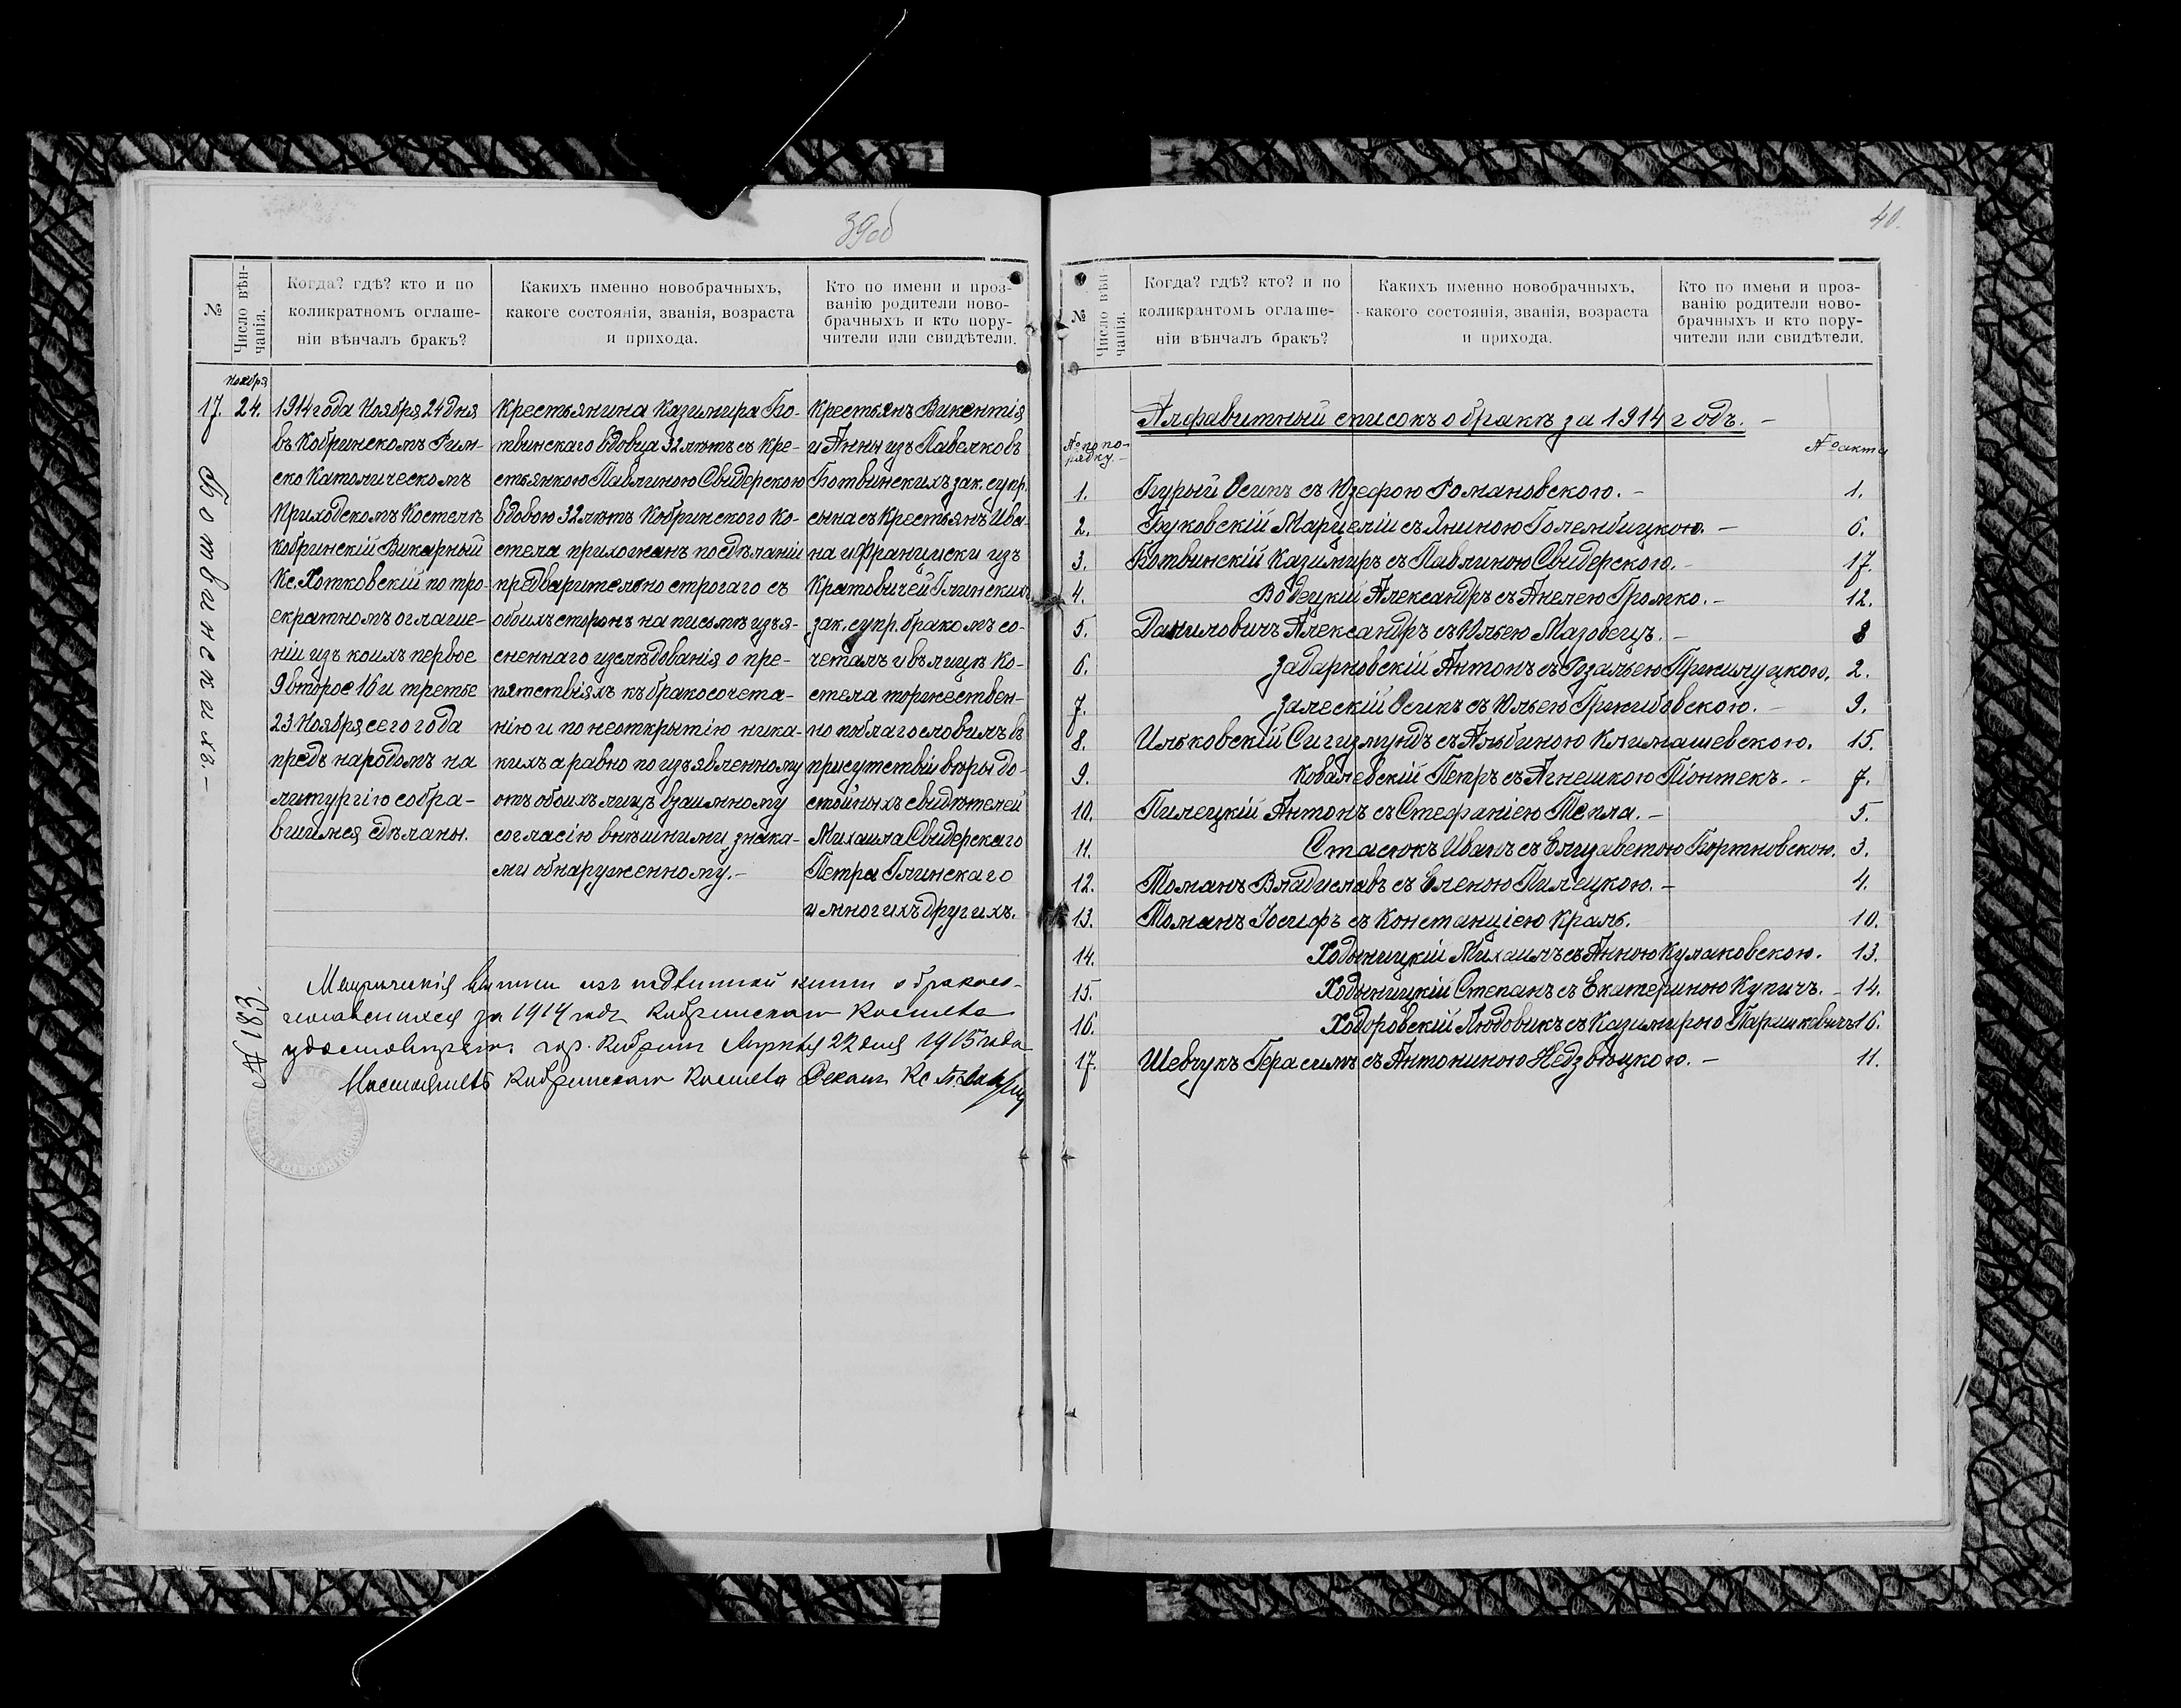 39об
№
Число вѣн-
чанія.
Когда? гдѣ? кто и по
коликратномъ оглаше-
ніи вѣнчалъ бракъ?
Какихъ именно новобрачныхъ,
какоге состоянія, званія, возраста
и прихода.
Кто по имени и проз-
ванію родители ново-
брачныхъ и кто пору-
чители или свидѣтели.
Ноября
17. 24.
Ботвинскихъ.-
1914 года Ноября 24 дня
въ Кобринскомъ Рим-
ско Католическомъ
Приходскомъ Костелѣ
Кобринскій Викарный
Кс. Хотковскій по тро-
екратномъ оглаше-
ніи изъ коихъ первое
9 второе 16 и третье
23 Ноября сего года
предъ народомъ на
литургію собра-
вшимся сдѣланы.
Крестьянина Казимира Бо-
твинскаго вдовца 32 лѣтъ съ кре-
стьянкою Павлиною Свидерскою
вдовою 32 лѣтъ Кобринского Ко-
стела прихожанъ по сдѣланіи
предварительно строгаго съ
обоихъ сторонъ на письмѣ изъя-
сненнаго изслѣдованія о пре-
пятствіяхъ къ бракосочета-
нію и по неоткрытію ника-
кихъ а равно по изъявленному
отъ обоихъ лицъ взаимному
согласію внѣшними знака-
ми обнаруженному.-
Крестьянъ Викентія
и Анны изъ Павелковъ
Ботвинскихъ зак. супр.
сына съ Крестьянъ Ива-
на и Франциски изъ
Кратовичей Глинскихъ
зак. супр. бракомъ со-
четалъ и въ лицѣ Ко-
стела торжествен-
но поблагословилъ въ
присутствіи вѣры до-
стойныхъ свидѣтелей
Михаила Свидерскаго
Петра Глинскаго
и многихъ другихъ.
№ 183.
Метрическія выписи изъ подлинной книги о бракосо-
за 1914 годъ Кобринскаго Костела
гор. Кобринъ 22 дня 1915 года
Настоятель Кобринскаго Костела Деканъ Кс.
40.
№
Число вѣн-
чанія.
Когда? гдѣ? кто? и по
коликрантомъ оглаше-
ніи вѣнчалъ бракъ?
Какихъ именно новобрачныхъ,
какого состоянія, званія, возраста
и прихода.
Кто по имени и проз-
ванію родители ново-
брачныхъ и кто пору-
чители или свидѣтели.
Алфавитный списокъ о бракѣ за 1914 годъ. -
№ по по-
рядку.-
№ акта
1. Бурый Осипъ съ Юзефою Романовскою. - 1.
2. Буковскій Марцелій съ Яниною Голембицкою. - 6.
3. Ботвинскій Казимиръ съ Павлиною Свидерскою. - 17.
4. Водецкій Александръ съ Анелею Громко. - 12.
5. Даниловичъ Александръ съ Юльею Мазовецъ. - 8
6. Задарновскій Антонъ съ Розальею Прилуцкою. 2.
7. Залескій Осипъ съ Юльею Гржибовскою. - 9.
8. Ильковскій Сигизмундъ съ Альбиною Климашевскою. 15.
9. Ковалевскій Петръ съ Агнешкою Піонтекъ. - 7.
10. Пилецкій Антонъ съ Стефаніею Тепла. - 5.
11. Стасюкъ Иванъ съ Елизаветою Гортновскою. 3.
12. Томанъ Владиславъ съ Еленою Пилецкою. - 4.
13. Томанъ Іосифъ съ Констанціею Краль. 10.
14. Ходыницкій Михаилъ съ Анною Кулаковскою. 13.
15. Ходыницкій Степанъ съ Екатериною Купичъ. - 14.
16. Ходоровскій Людовикъ съ Казимирою Паршковичъ 16.
17. Шевчукъ Герасимъ съ Антониною Недзвѣцкою. - 11.